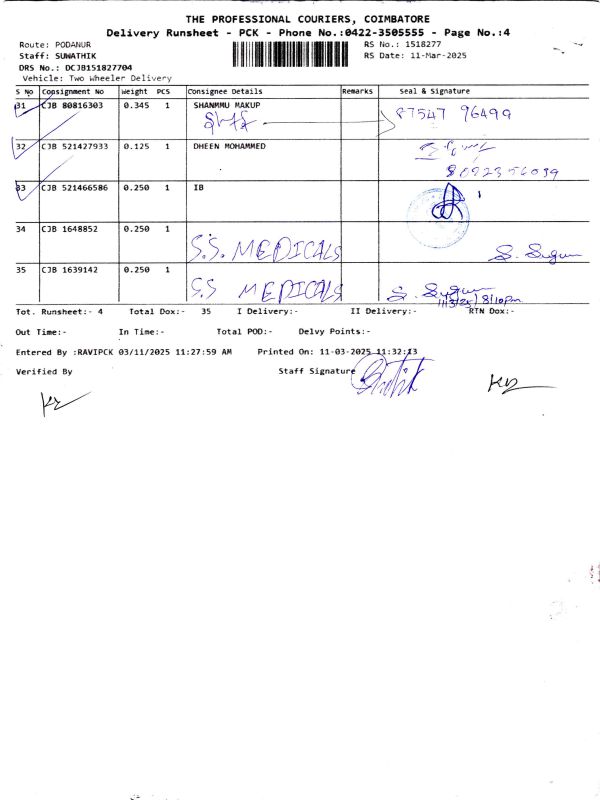 THE PROFESSIONAL COURIERS, COIMBATORE
Delivery Runsheet - PCK - Phone No.:0422-3505555 - Page No.:4
Route: PODANUR
RS No.: 1518277
Staff: SUWATHIK
RS Date: 11-Mar-2025
DRS No.: DCJB151827704
Vehicle: Two Wheeler Delivery
S No Consignment No Weight PCS Consignee Details Remarks Seal & Signature
31 CJB 80816303 0.345 1 SHANMMU MAKUP
87547 96499
32 CJB 521427933 0.125 1 DHEEN MOHAMMED
33 CJB 521466586 0.250 1 IB
34 CJB 1648852 0.250 1
S.S. MEDICALS S. Sugun
35 CJB 1639142 0.250 1
S.S MEDICALS S. Sugun
11/3/25 / 8/10pm
Tot. Runsheet:- 4 Total Dox:- 35 I Delivery:- II Delivery:- RTN Dox:-
Out Time:- In Time:- Total POD:- Delvy Points:-
Entered By :RAVIPCK 03/11/2025 11:27:59 AM Printed On: 11-03-2025 11:32:13
Verified By Staff Signature